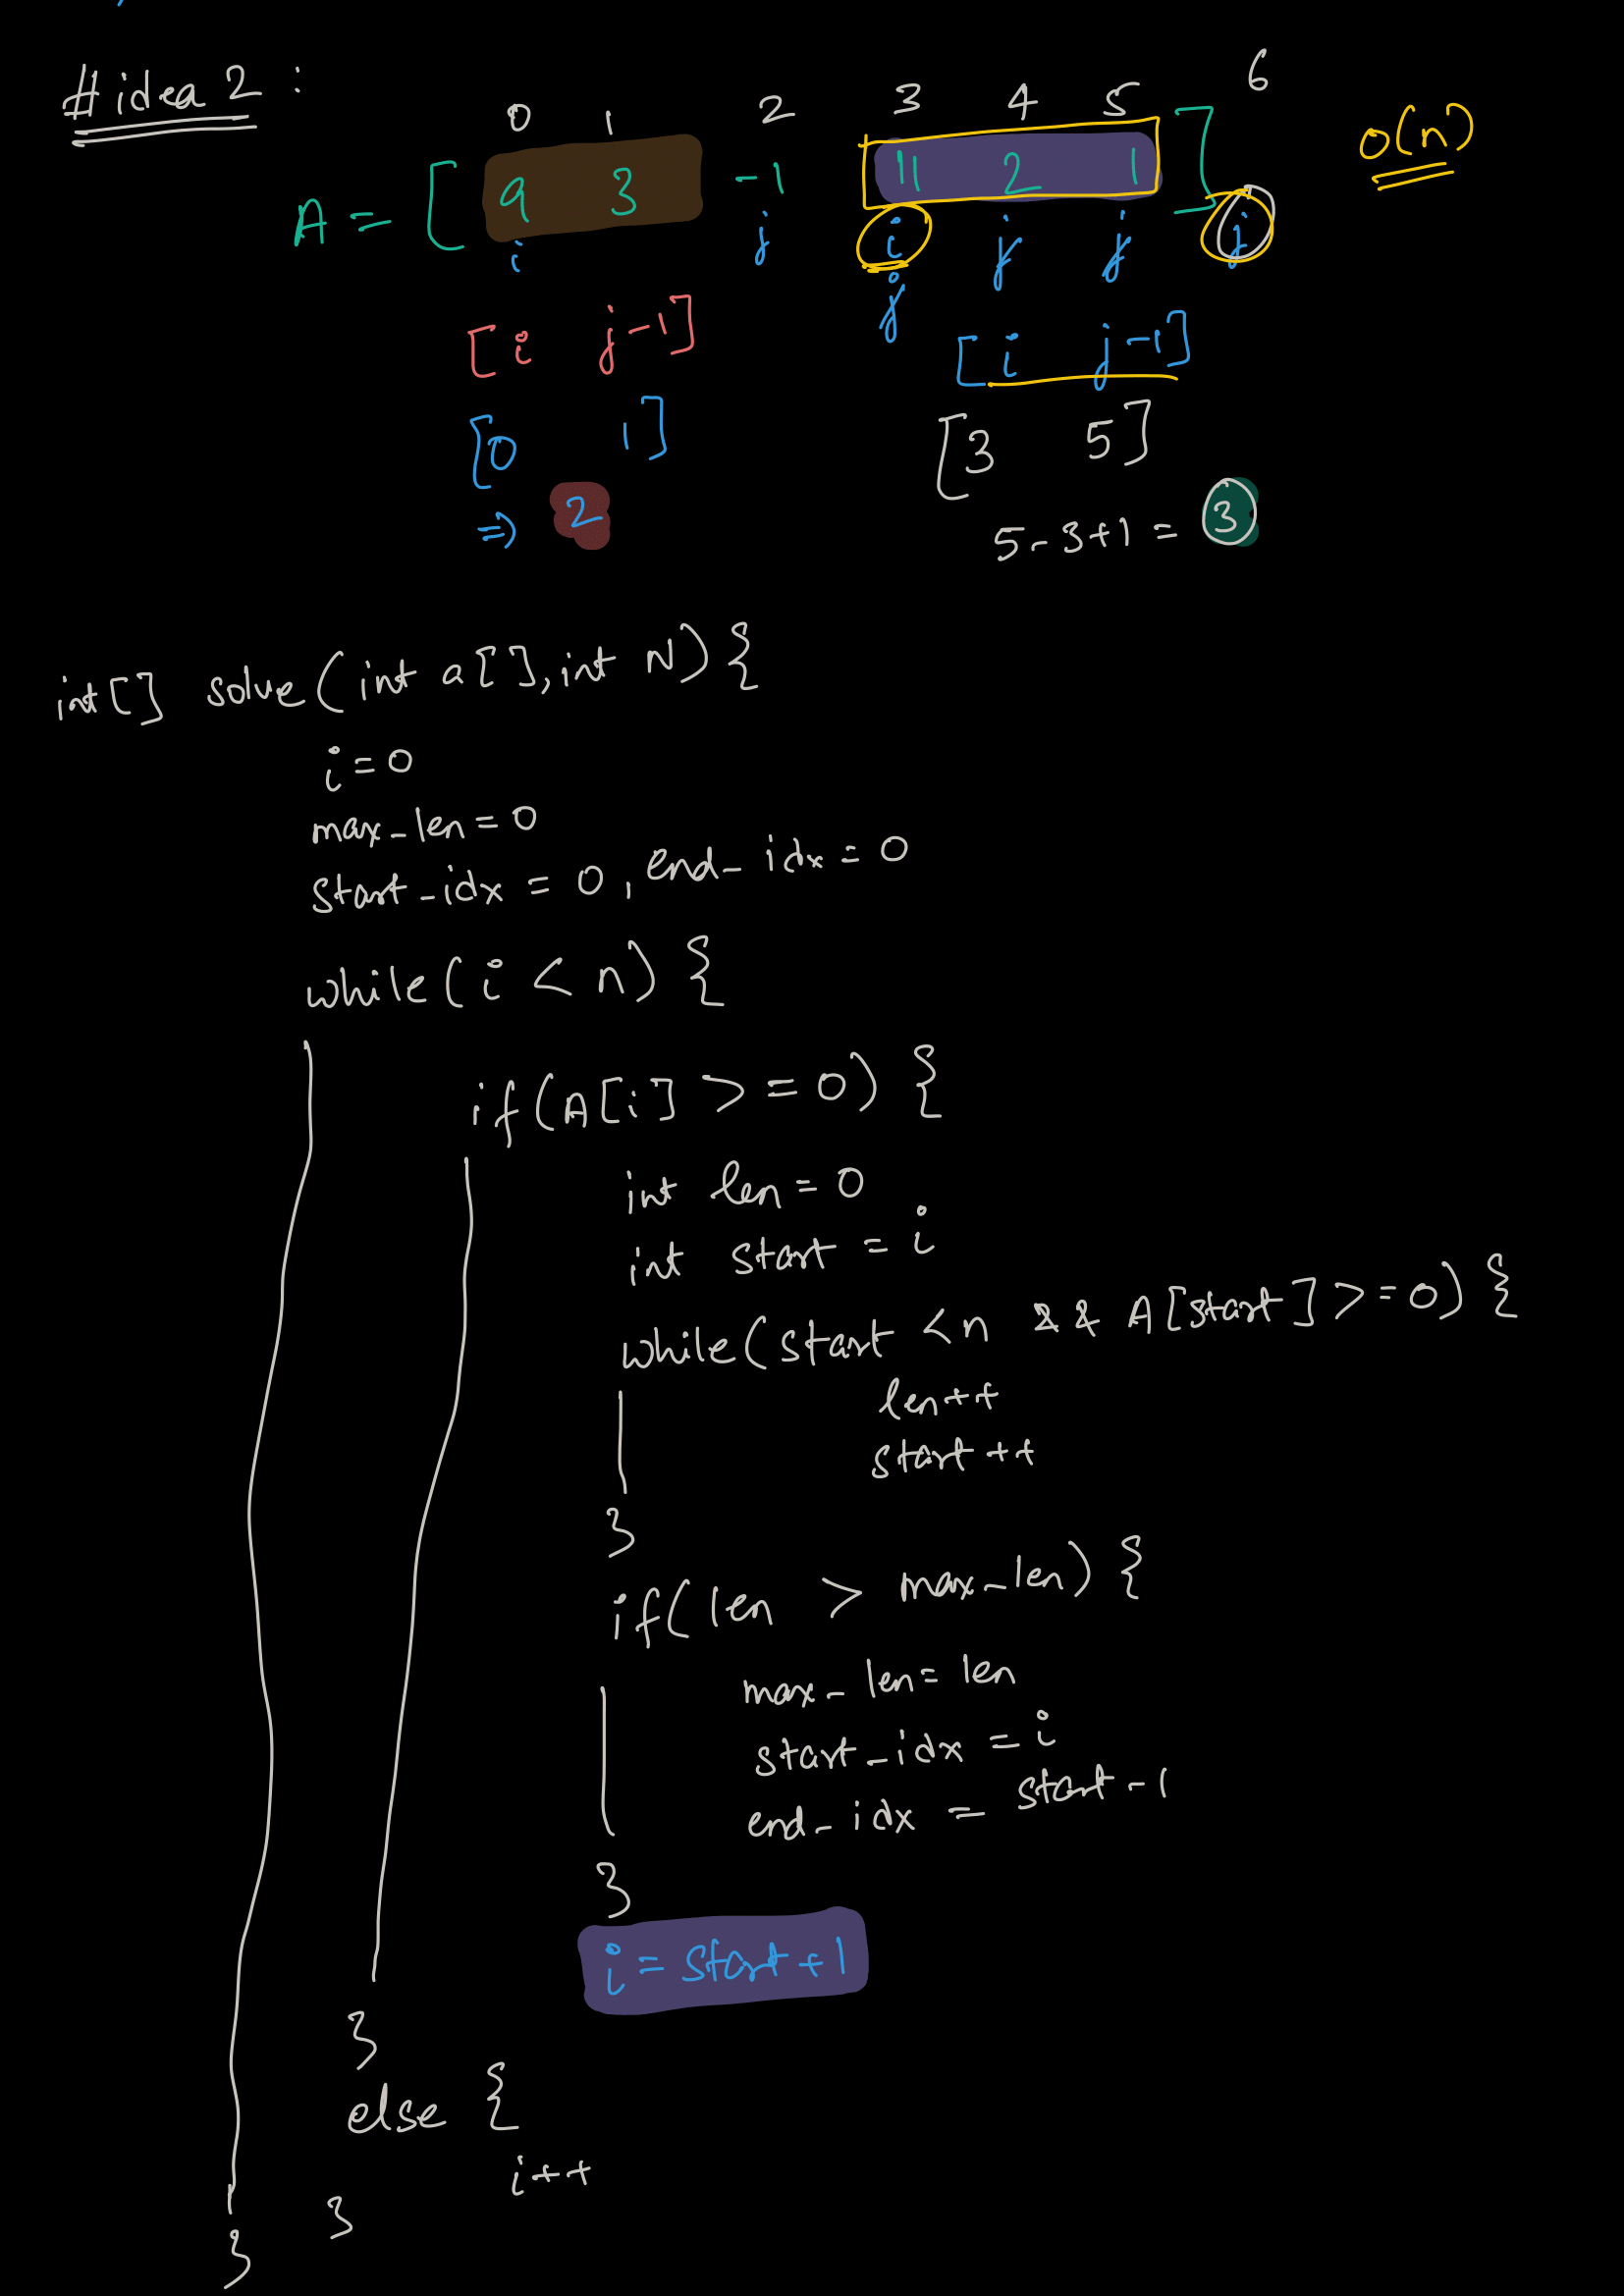 #idea 2 :
0 1 2 3 4 5 6
A = [ 9 3 -1 11 2 1 ]
O(n)
i j i j j j
j
[i j-1]
[i j-1]
[0 1]
[3 5]
=> 2
5-3+1 = 3
int[] solve(int a[], int N) {
i = 0
max_len = 0
start_idx = 0, end_idx = 0
while(i < n) {
if(A[i] >= 0) {
int len = 0
int start = i
while(start < n && A[start] >= 0) {
len++
start++
}
if(len > max_len) {
max_len = len
start_idx = i
end_idx = start-1
}
i = start+1
}
else {
i++
}
}